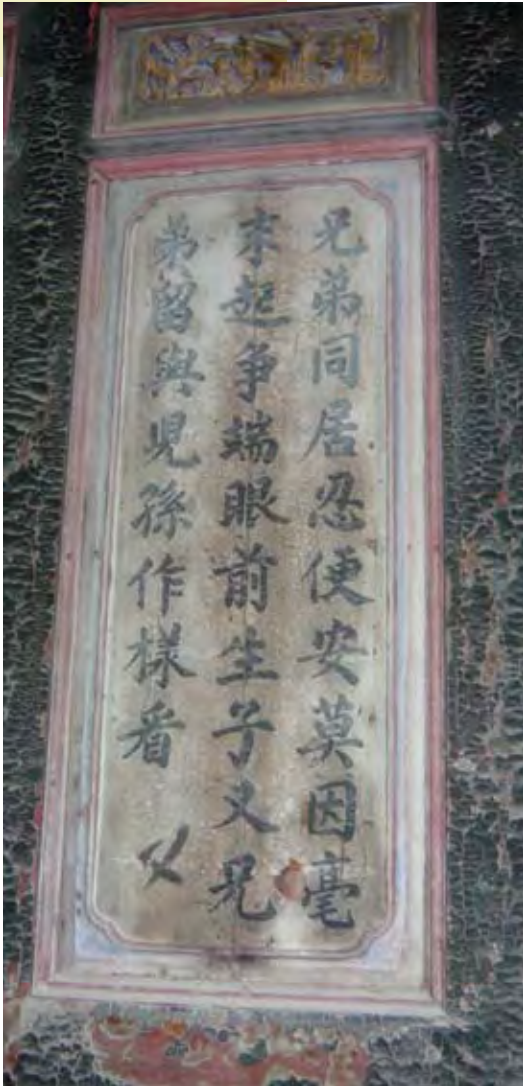 兄弟同居忍便安莫因毫
末起争端眼前生子又兄
弟留與兒孫作様看